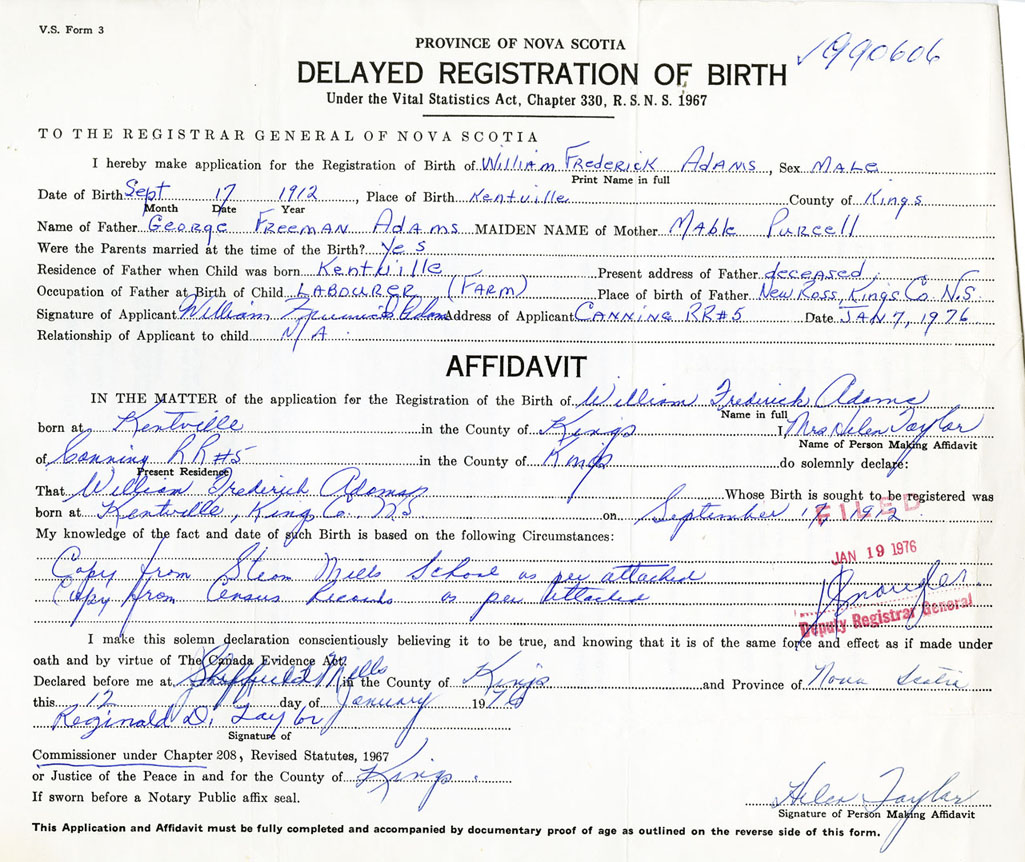 V.S. Form 3
PROVINCE OF NOVA SCOTIA
1990606
DELAYED REGISTRATION OF BIRTH
Under the Vital Statistics Act, Chapter 330, R.S.N.S. 1967
TO THE REGISTRAR GENERAL OF NOVA SCOTIA
I hereby make application for the Registration of Birth of William Frederick Adams, Sex Male
Print Name in full
Date of Birth Sept 17 1912, Place of Birth Kentville County of Kings
Month Date Year
Name of Father George Freeman Adams MAIDEN NAME of Mother Mable Purcell
Were the Parents married at the time of the Birth? Yes
Residence of Father when Child was born Kentville Present address of Father deceased
Occupation of Father at Birth of Child LABOURER (FARM) Place of birth of Father New Ross, Kings Co. N.S
Signature of Applicant William Frederick Adams Address of Applicant CANNING RR#5 Date JAN 7, 1976
Relationship of Applicant to child N/A
AFFIDAVIT
IN THE MATTER of the application for the Registration of the Birth of William Frederick Adams
Name in full
born at Kentville in the County of Kings I Mrs Helen Taylor
Name of Person Making Affidavit
of Canning RR#5 in the County of Kings do solemnly declare:
(Present Residence)
That William Frederick Adams Whose Birth is sought to be registered was
born at Kentville, King Co. NS on September 17, 1912
FILED
My knowledge of the fact and date of such Birth is based on the following Circumstances:
JAN 19 1976
Copy from Steam Mills School as per attached
Copy from Census Records as per attached
Deputy Registrar General
I make this solemn declaration conscientiously believing it to be true, and knowing that it is of the same force and effect as if made under
oath and by virtue of The Canada Evidence Act.
Declared before me at Sheffield Mills in the County of Kings and Province of Nova Scotia
this 12 day of January 1976
Reginald D. Taylor
Signature of
Commissioner under Chapter 208, Revised Statutes, 1967
or Justice of the Peace in and for the County of Kings.
If sworn before a Notary Public affix seal.
Helen Taylor
Signature of Person Making Affidavit
This Application and Affidavit must be fully completed and accompanied by documentary proof of age as outlined on the reverse side of this form.